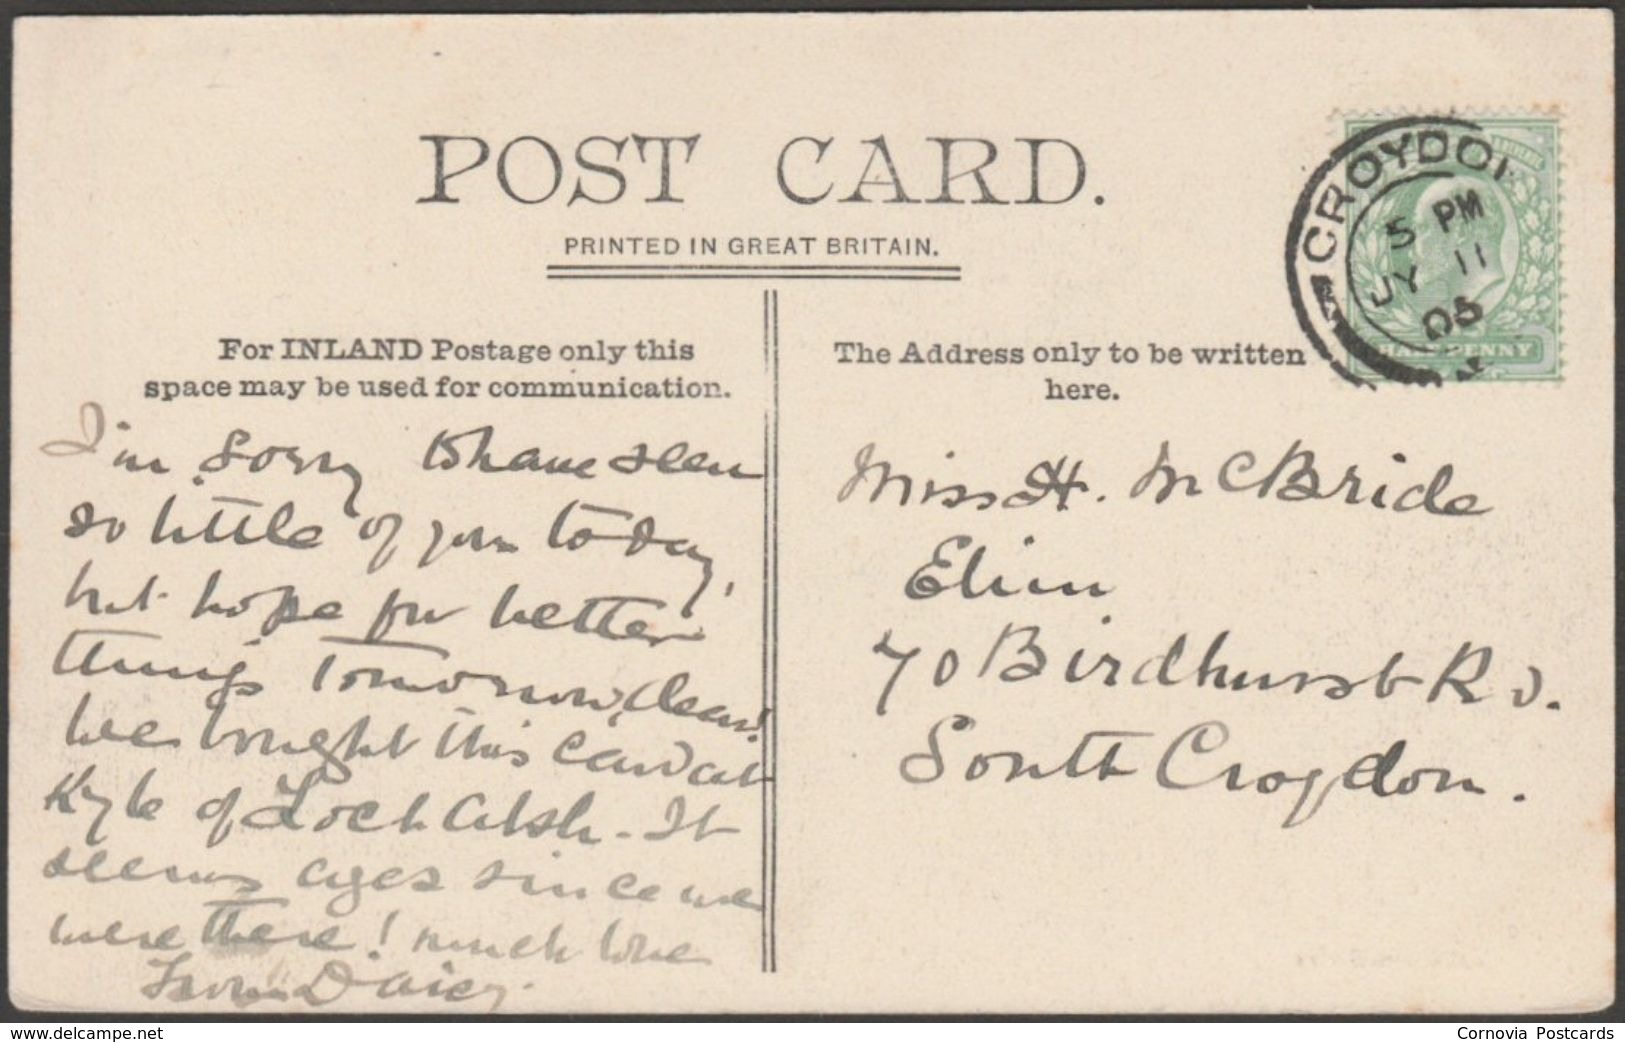 POST CARD.
PRINTED IN GREAT BRITAIN.
For INLAND Postage only this
space may be used for communication.
The Address only to be written
here.
CROYDON
5 PM
JY 11
06
HALFPENNY
I'm sorry to have seen
so little of you to-day,
but hope for better
things tomorrow, dear!
We bought this card at
Kyle of Loch Alsh. It
seems ages since we
were there! much love
from Daisy.
Miss H. McBride
Elim
70 Birdhurst Rd.
South Croydon.
delcampe.net
Cornovia Postcards